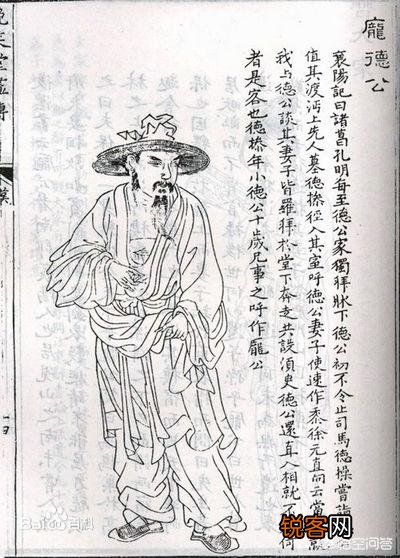 龐德公
襄陽記曰諸葛孔明每至德公家獨拜牀下德公初不令止司馬德操嘗詣
值其渡沔上先人墓德操徑入其室呼德公妻子使速作黍徐元直向云當
我與德公談其妻子皆羅拜於堂下奔走共設須臾德公還直入相就不何
者是客也德操年小德公十歲兄事之呼作龐公
晚笑堂畫傳
漢
Baidu百科
锐客网
悟空问答